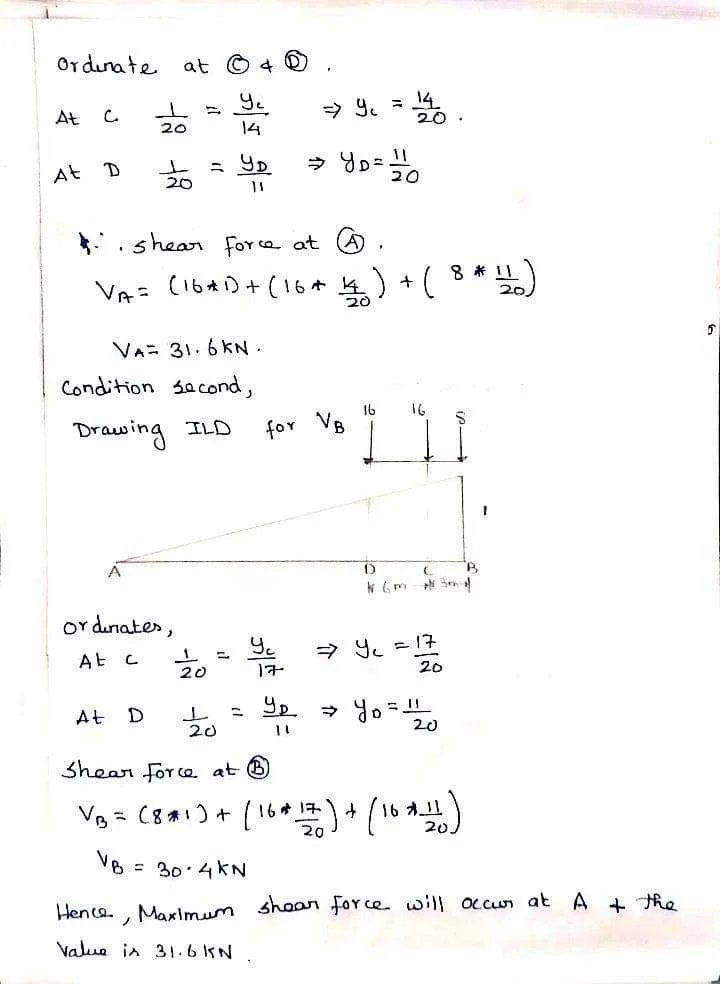 Ordinate at Ⓒ & Ⓓ .
At C 1/20 = yc/14 ⇒ yc = 14/20 .
At D 1/20 = yD/11 ⇒ yD = 11/20
∴ . shear force at Ⓐ .
VA = (16*1) + (16* 14/20) + ( 8 * 11/20)
VA = 31.6 KN .
Condition second,
Drawing ILD for VB
16 16 8
1
A D C B
6m 3m
ordinates,
At C 1/20 = yc/17 ⇒ yc = 17/20
At D 1/20 = yD/11 ⇒ yD = 11/20
Shear force at Ⓑ
VB = (8*1) + (16* 17/20) + (16 * 11/20)
VB = 30.4 KN
Hence, Maximum shear force will occur at A & the
Value is 31.6 KN .